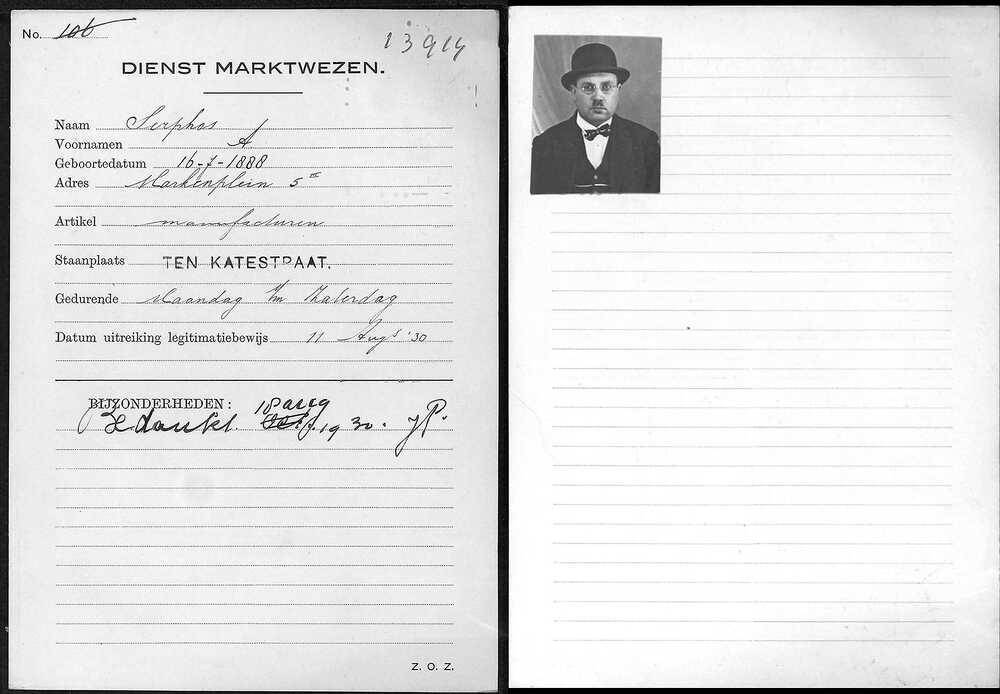 No. 106
13914
DIENST MARKTWEZEN.
Naam Serphos
Voornamen A
Geboortedatum 16-7-1888
Adres Markenplein 5 III
Artikel manufacturen
Staanplaats TEN KATESTRAAT.
Gedurende Maandag t/m Zaterdag
Datum uitreiking legitimatiebewijs 11 Augs '30
BIJZONDERHEDEN:
Bedankt. 18 aug 1930. JP.
Z. O. Z.